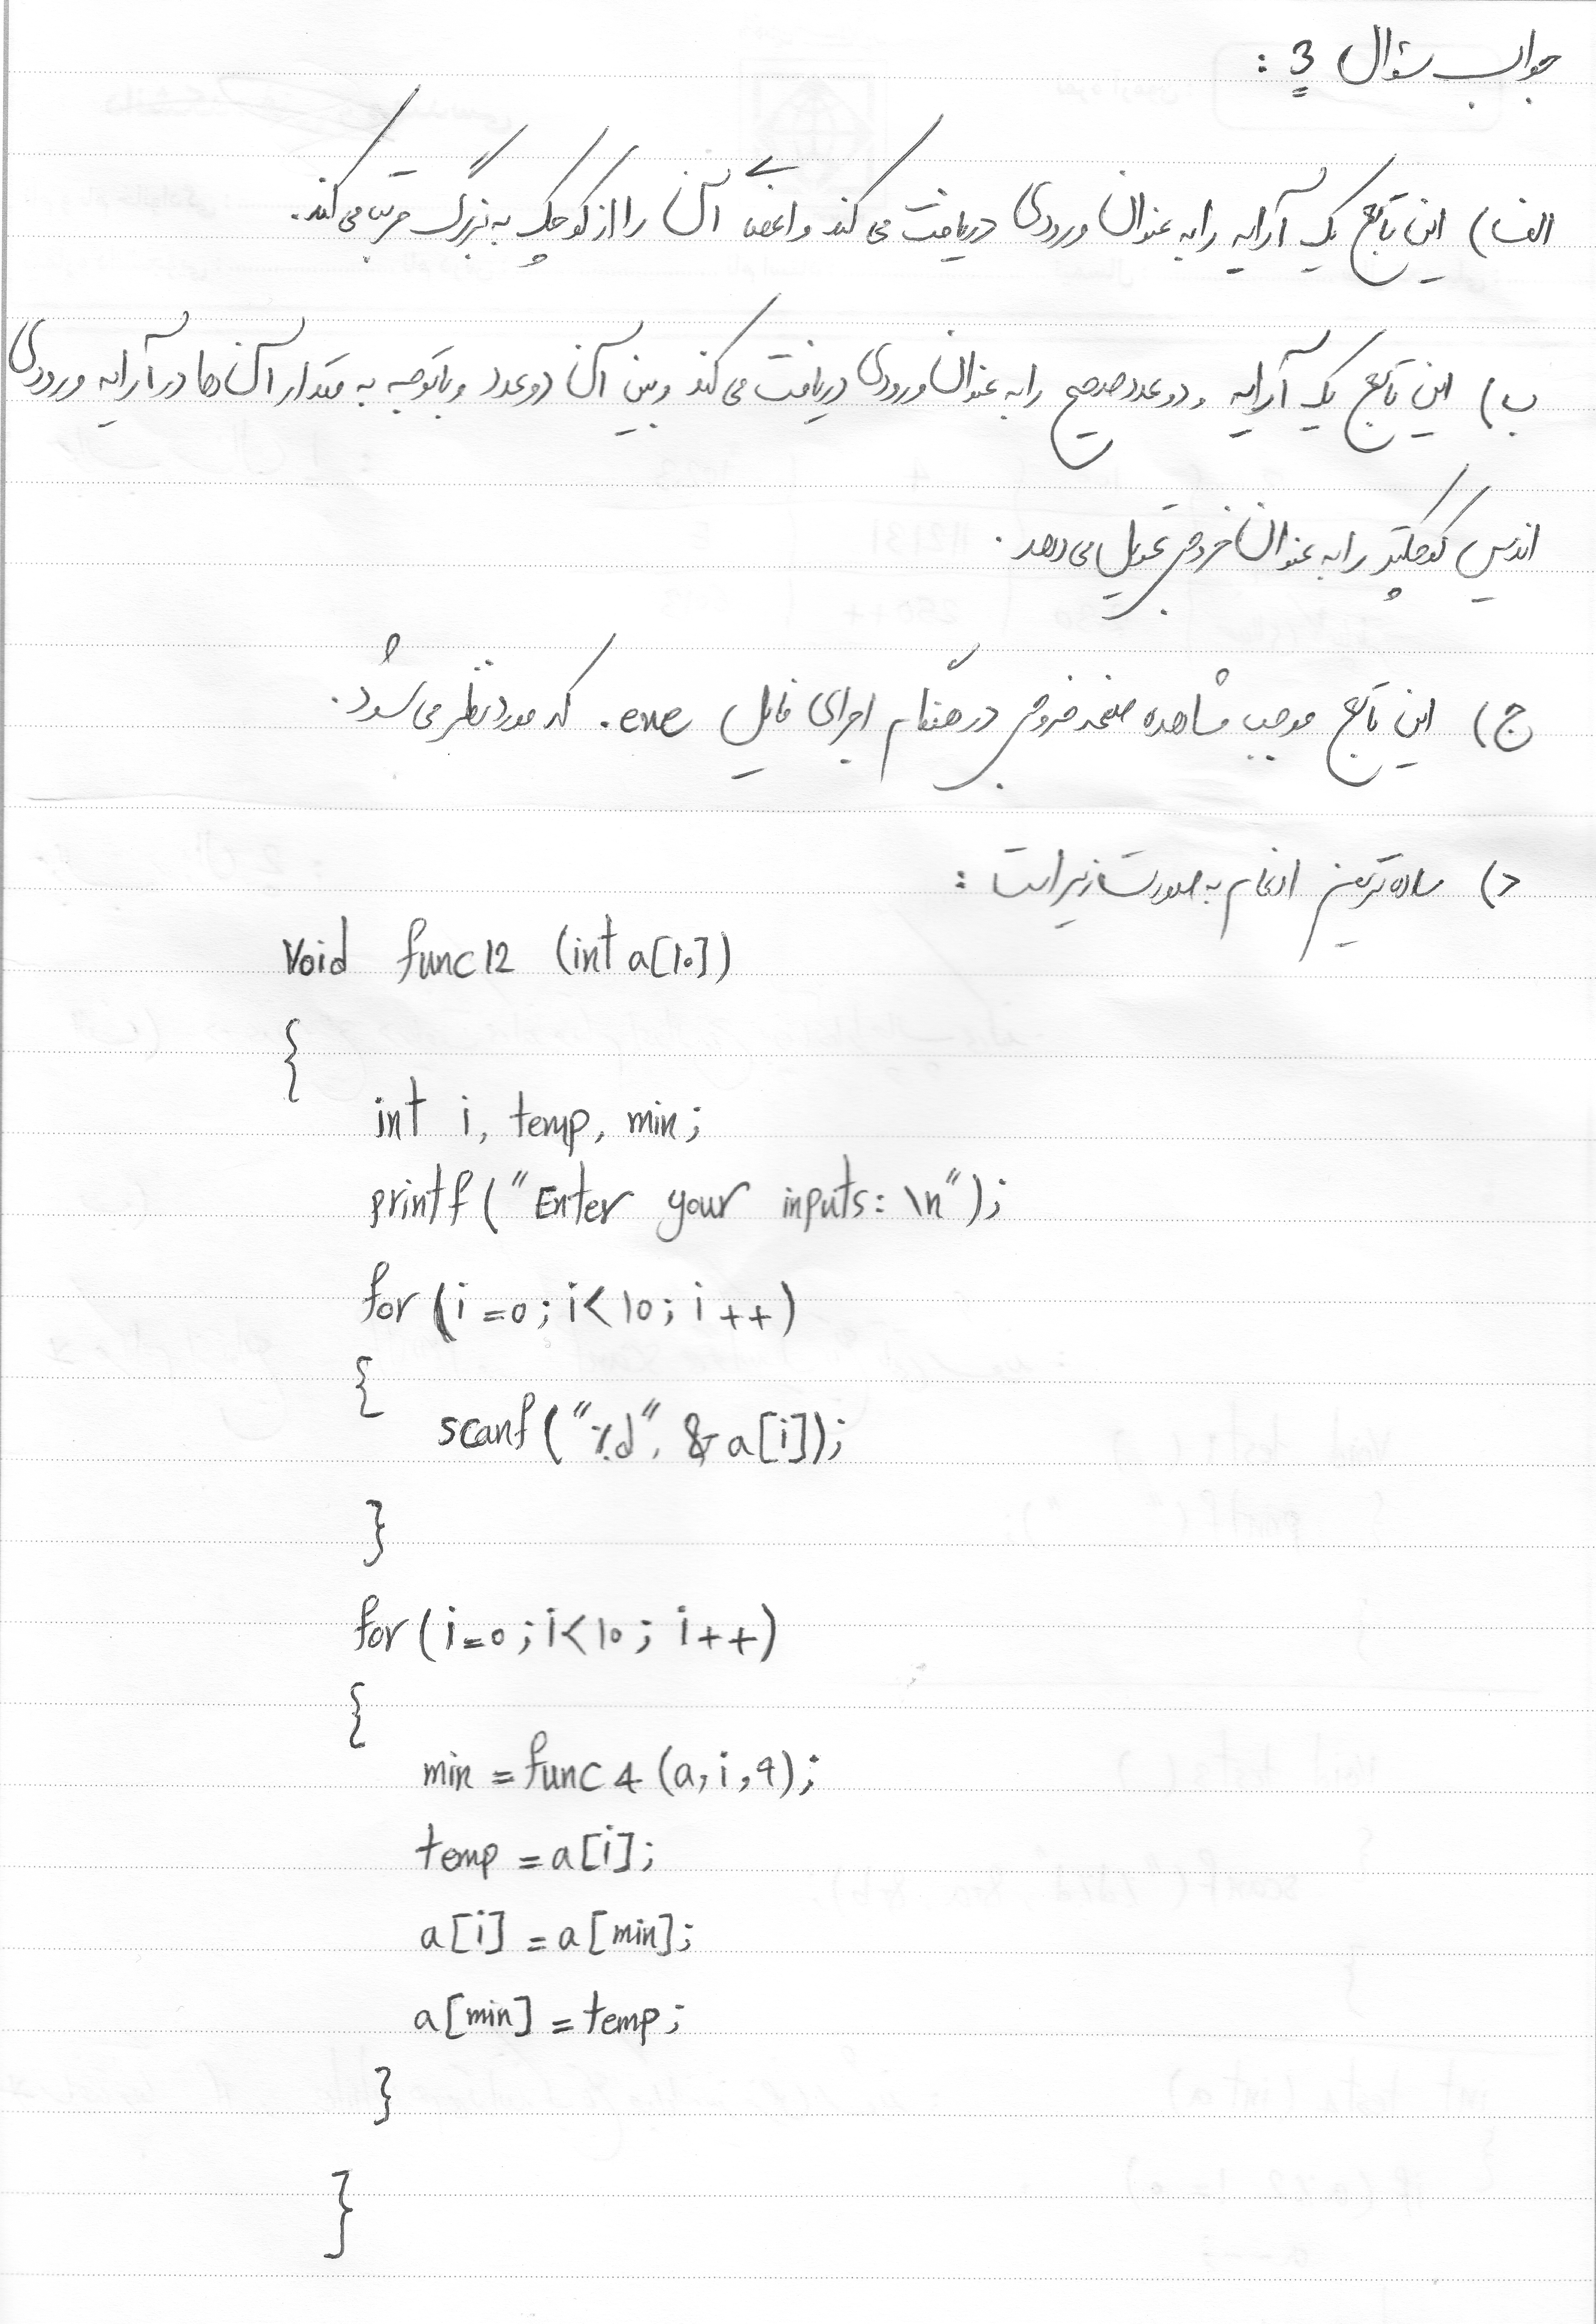 جواب سؤال 3 :
الف) این تابع یک آرایه را به عنوان ورودی دریافت می کند و اعضای آن را از کوچک به بزرگ مرتب می کند.
ب) این تابع یک آرایه و دو عدد صحیح را به عنوان ورودی دریافت می کند و بین آن دو عدد و با توجه به مقدار آن ها در آرایه ورودی
اندیس کوچکتر را به عنوان خروجی تحویل می دهد.
ج) این تابع موجب مشاهده صفحه خروجی در هنگام اجرای فایل .exe که مورد نظر می شود.
د) ساده ترین ادغام به صورت زیر است :
Void func12 (int a[10])
{
int i, temp, min;
printf("Enter your inputs: \n");
for (i=0; i<10; i++)
{
scanf("%d", &a[i]);
}
for(i=0; i<10; i++)
{
min = func4 (a, i, 9);
temp = a[i];
a[i] = a[min];
a[min] = temp;
}
}